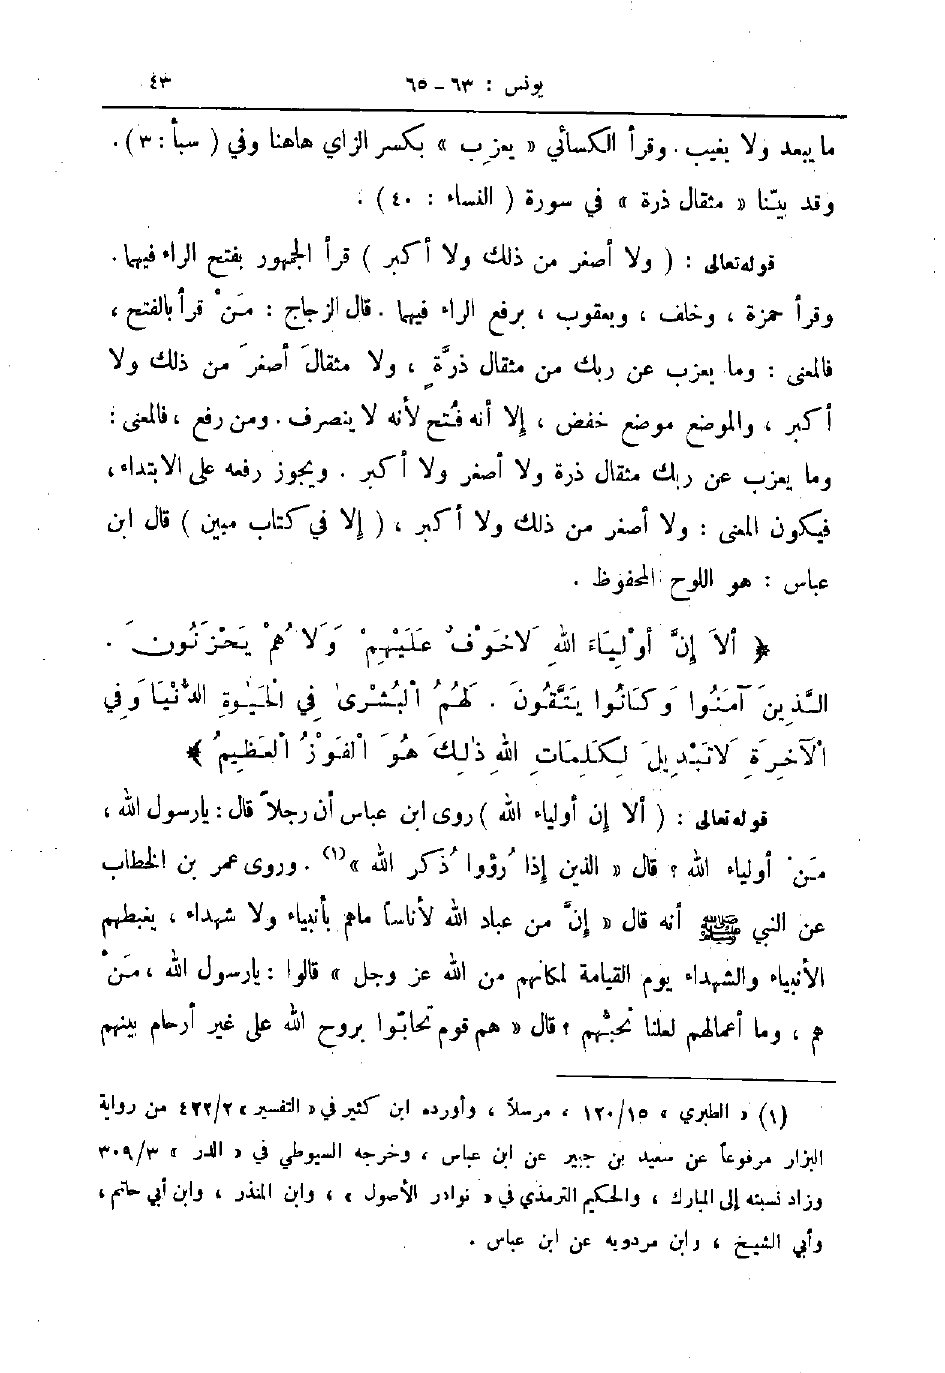 يونس : ٦٣ – ٦٥ ٤٣
ما يبعد ولا يغيب . وقرأ الكسائي « يعزِب » بكسر الزاي هاهنا وفي ( سبأ : ٣ ) .
وقد بيّنا « مثقال ذرة » في سورة ( النساء : ٤٠ ) .
قوله تعالى : ( ولا أصغر من ذلك ولا أكبر ) قرأ الجمهور بفتح الراء فيهما .
وقرأ حمزة ، وخلف ، ويعقوب ، برفع الراء فيهما . قال الزجاج : مَنْ قرأ بالفتح ،
فالمعنى : وما يعزب عن ربك من مثقال ذرَّةٍ ، ولا مثقالَ أصغرَ من ذلك ولا
أكبر ، والموضع موضع خفض ، إلا أنه فُتح لأنه لا ينصرف . ومن رفع ، فالمعنى :
وما يعزب عن ربك مثقال ذرة ولا أصغر ولا أكبر . ويجوز رفعه على الابتداء ،
فيكون المعنى : ولا أصغر من ذلك ولا أكبر ، ( إلا في كتاب مبين ) قال ابن
عباس : هو اللوح المحفوظ .
﴿ ألاَ إنَّ أوْلِيَاءَ اللهِ لاَخَوْفٌ عَلَيْهِمْ وَلاَ هُمْ يَحْزَنُونَ .
الَّذِينَ آمَنُوا وَكَانُوا يَتَّقُونَ . لَهُمُ الْبُشْرىٰ فِي الْحَيٰوةِ الدُّنْيَا وَفِي
الْآخِرَةِ لاَتَبْدِيلَ لِكَلِمَاتِ اللهِ ذٰلِكَ هُوَ الْفَوْزُ الْعَظِيمُ ﴾
قوله تعالى : ( ألا إن أولياء الله ) روى ابن عباس أن رجلاً قال : يارسول الله ،
مَنْ أولياء الله ؟ قال « الذين إذا رُؤوا ذُكر الله »(١) . وروى عمر بن الخطاب
عن النبي ﷺ أنه قال « إنَّ من عباد الله لأناساً ماهم بأنبياء ولا شهداء ، يغبطهم
الأنبياء والشهداء يوم القيامة لمكانهم من الله عز وجل » قالوا : يارسول الله ، مَنْ
هم ، وما أعمالهم لعلنا نحبُّهم ؟ قال « هم قوم تحابّوا بروح الله على غير أرحام بينهم
(١) « الطبري » ١٢٠/١٥ ، مرسلاً ، وأورده ابن كثير في « التفسير » ٤٢٢/٢ من رواية
البزار مرفوعاً عن سعيد بن جبير عن ابن عباس ، وخرجه السيوطي في « الدر » ٣٠٩/٣
وزاد نسبته إلى المبارك ، والحكيم الترمذي في « نوادر الأصول » ، وابن المنذر ، وابن أبي حاتم ،
وأبي الشيخ ، وابن مردويه عن ابن عباس .